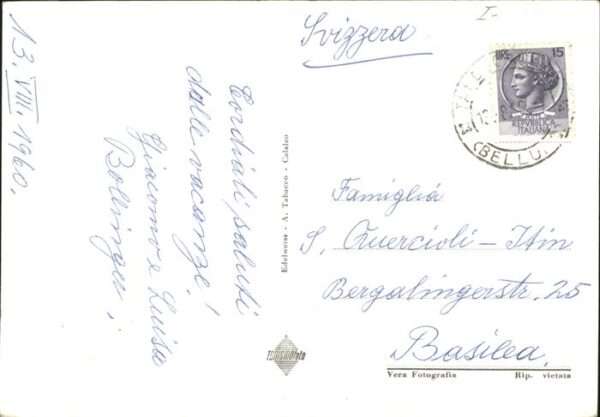 13. VIII. 1960.
Cordiali saluti
dalle vacanze!
Giacomo e Luisa
Bollinger
Svizzera
I-
LIRE 15
REPUBBLICA
ITALIANA
(BELLU
Famiglia
S. Quercioli-Itin
Bergalingerstr. 25
Basilea.
Edelweiss - A. Tabacco - Calalzo
Vera Fotografia Rip. vietata